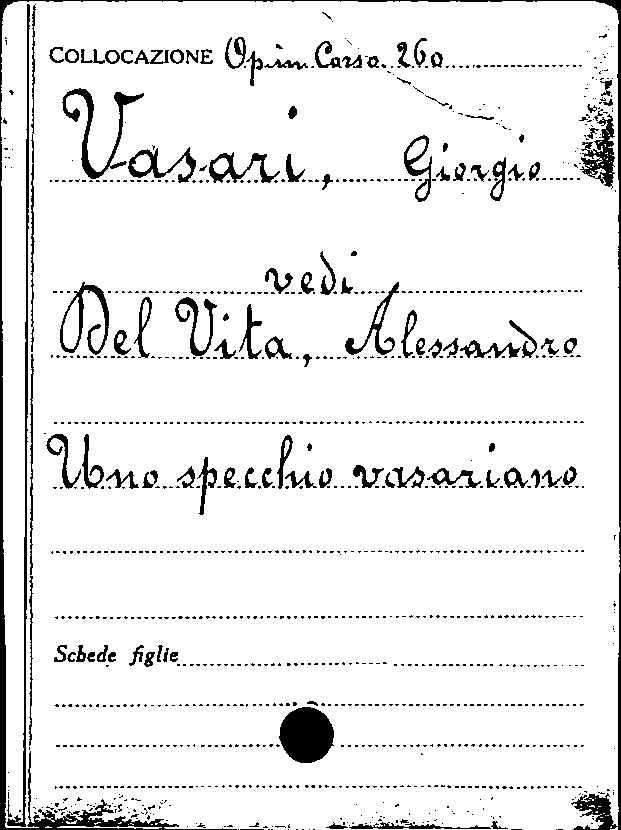 COLLOCAZIONE Op. in Corso 260
Vasari, Giorgio
vedi
Del Vita, Alessandro
Uno specchio vasariano
Schede figlie